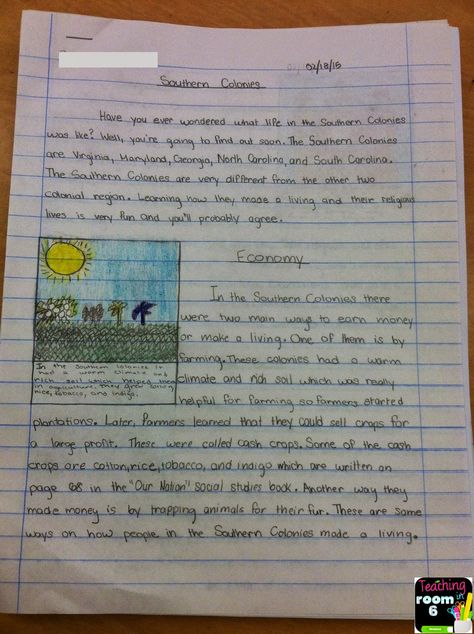 02/18/15
Southern Colonies
Have you ever wondered what life in the Southern Colonies
was like? Well, you're going to find out soon. The Southern Colonies
are Virginia, Maryland, Georgia, North Carolina, and South Carolina.
The Southern Colonies are very different from the other two
colonial region. Learning how they made a living and their religious
lives is very fun and you'll probably agree.
Economy
In the Southern Colonies there
were two main ways to earn money
or make a living. One of them is by
farming. These colonies had a warm
climate and rich soil which was really
helpful for farming so farmers started
In the Southern Colonies it
had a warm climate and
rich soil which helped them
in agriculture. They grew
rice, tobacco, and indigo.
plantations. Later, farmers learned that they could sell crops for
a large profit. These were called cash crops. Some of the cash
crops are cotton, rice, tobacco, and indigo which are written on
page in the "Our Nation" social studies book. Another way they
made money is by trapping animals for their fur. These are some
ways on how people in the Southern Colonies made a living.
Teaching
in
room
6